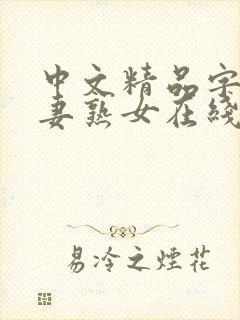 中文精品字
妻熟女在线
易冷之煙花